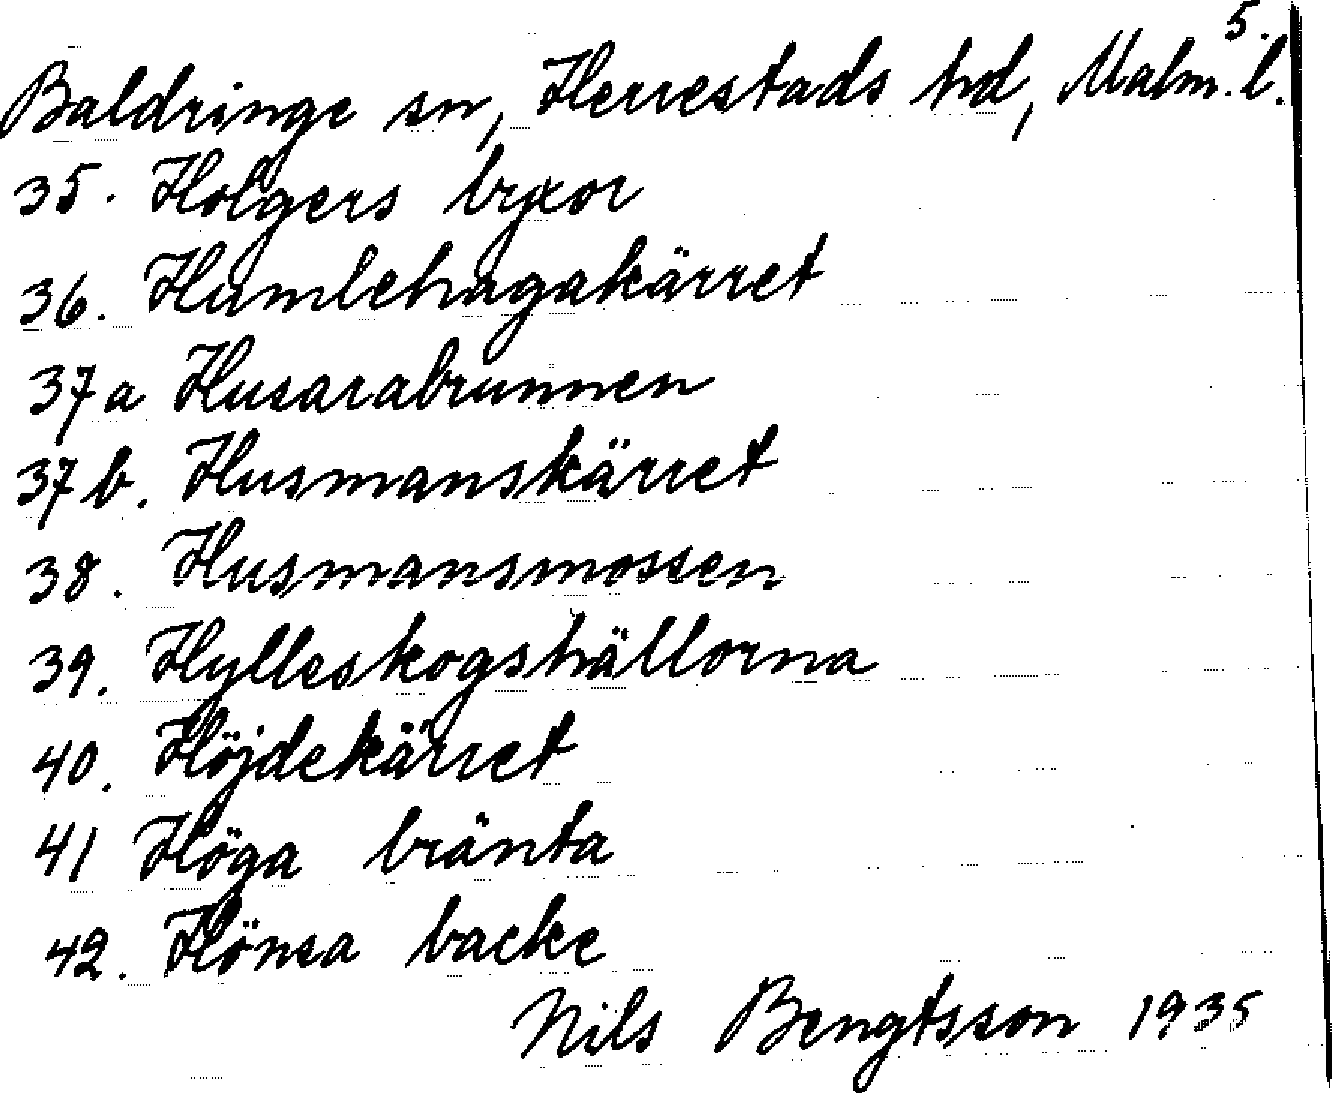 5.
Baldringe sn, Herrestads hd, Malm. l.
35. Holgers byxor
36. Humlehagakärret
37a Husarabrunnen
37b. Husmanskärret
38. Husmansmossen
39. Hylleskogshällorna
40. Höjdekärret
41 Höga bränta
42. Hönsa backe
Nils Bengtsson 1935